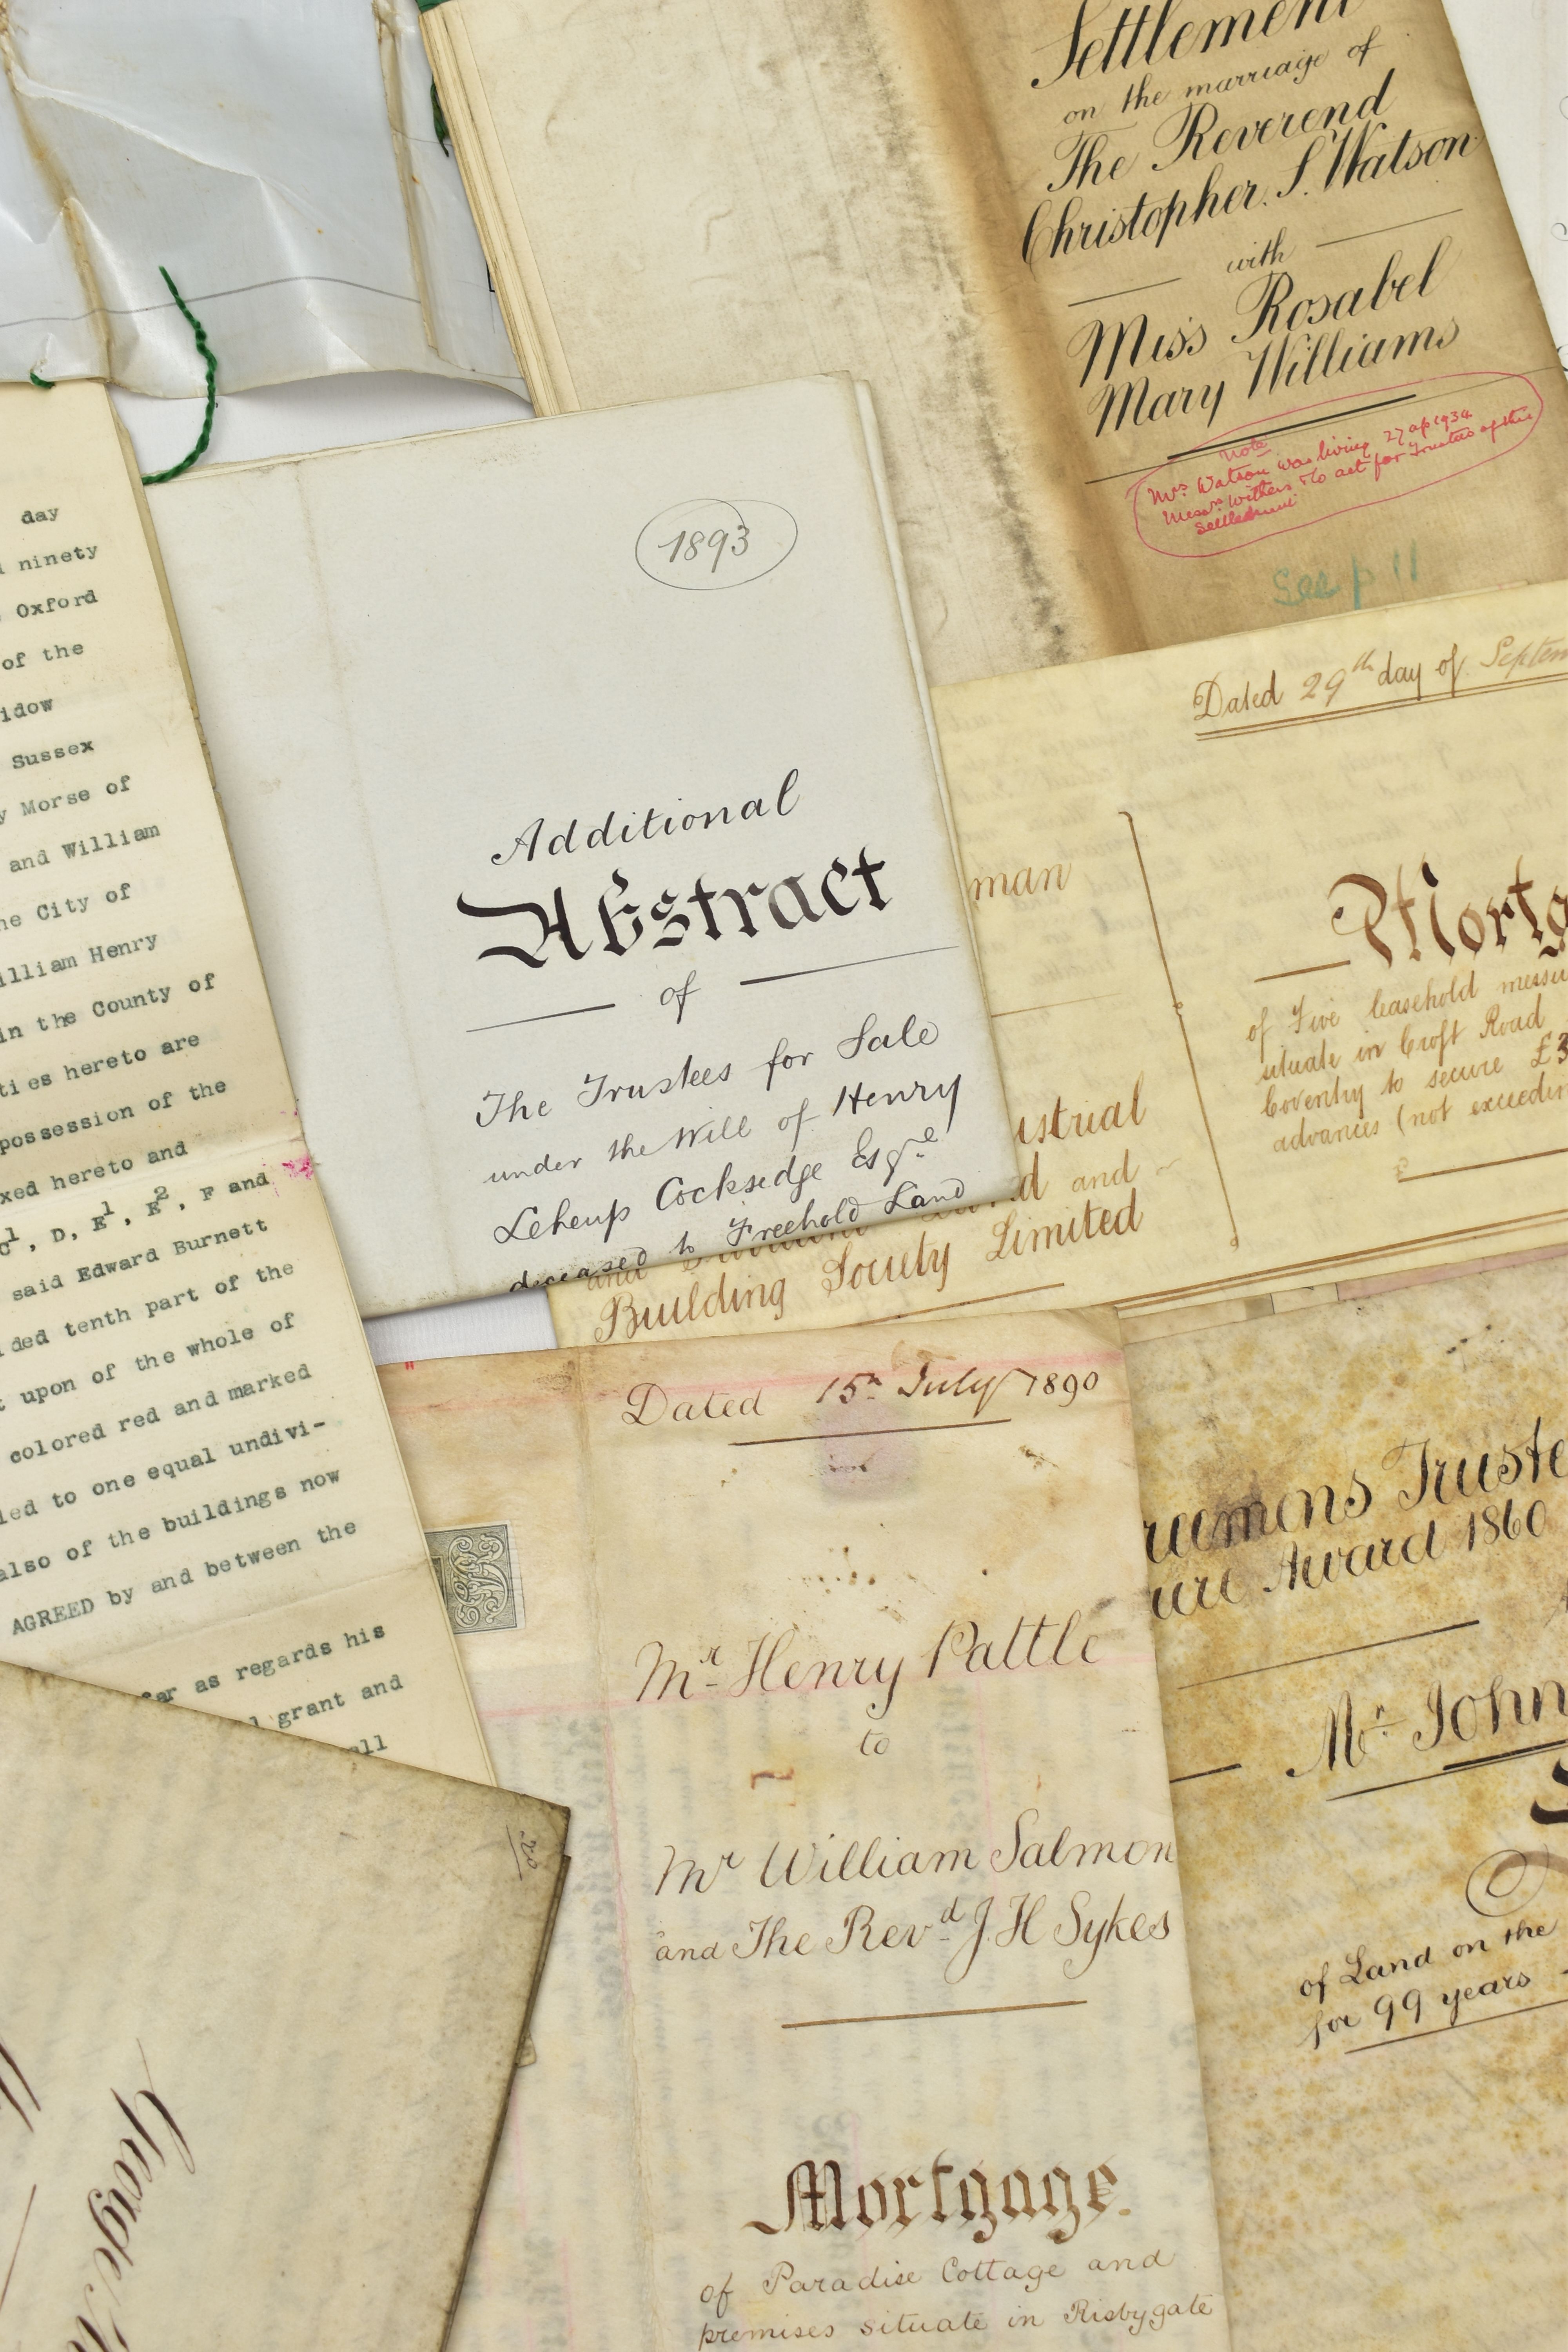 Settlement
on the marriage of
The Reverend
Christopher. S. Watson
with
Miss Rosabel
Mary Williams
Note
Mrs. Watson was living 27 ap 1934
Messrs Withers & Co act for Trustees of this
Settlement
See p 11
day
ninety
Oxford
of the
idow
Sussex
y Morse of
and William
he City of
illiam Henry
in the County of
ties hereto are
possession of the
xed hereto and
C1, D, E1, E2, F and
said Edward Burnett
ided tenth part of the
t upon of the whole of
colored red and marked
led to one equal undivi-
also of the buildings now
AGREED by and between the
far as regards his
l grant and
all
1893
Additional
Abstract
of
The Trustees for Sale
under the Will of Henry
Leheup Cocksedge Esqre
deceased to Freehold Land
Dated 29th day of Septem
man
ustrial
d and
and
Building Society Limited
Mortga
of Five leasehold messu
situate in Croft Road
Coventry to secure £3
advances (not exceedin
£
Dated 15th July 1890
Mr Henry Pattle
to
Mr William Salmon
and The Revd J. H Sykes
Mortgage.
of Paradise Cottage and
premises situate in Risbygate
reemens Truste
ure Award 1860
Mr John
of Land on the
for 99 years
George